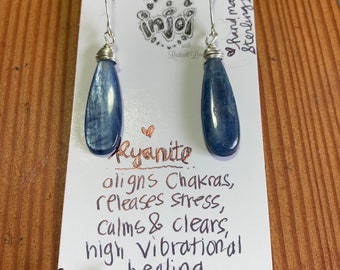 injoi
hand ma
Sterling
Kyanite
aligns Chakras,
releases stress,
calms & clears,
high Vibrational
healing